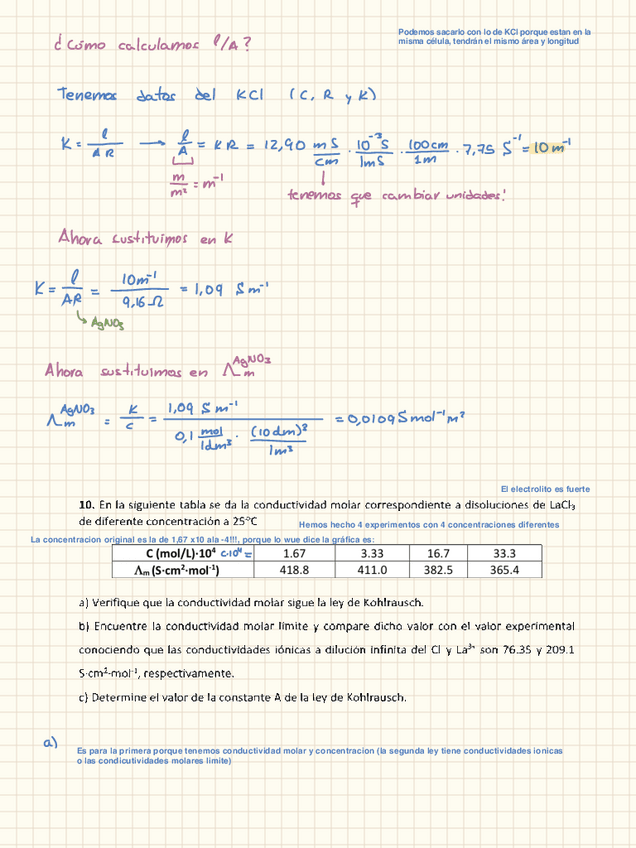 ¿Cómo calculamos l/A?
Podemos sacarlo con lo de KCl porque estan en la
misma célula, tendrán el mismo área y longitud
Tenemos datos del KCl (C, R y K)
K = l / AR → l/A = K R = 12,90 mS/cm · 10⁻³S/1mS · 100cm/1m · 7,75 S⁻¹ = 10 m⁻¹
m/m² = m⁻¹
tenemos que cambiar unidades!
Ahora sustituimos en K
K = l/AR = 10m⁻¹ / 9,16 Ω = 1,09 S m⁻¹
AgNO₃
Ahora sustituimos en Λm AgNO₃
Λm AgNO₃ = K/c = 1,09 S m⁻¹ / 0,1 mol/1dm³ · (10dm)³/1m³ = 0,0109 S mol⁻¹ m²
El electrolito es fuerte
10. En la siguiente tabla se da la conductividad molar correspondiente a disoluciones de LaCl₃
de diferente concentración a 25ºC
Hemos hecho 4 experimentos con 4 concentraciones diferentes
La concentracion original es la de 1,67 x10 ala -4!!!, porque lo wue dice la gráfica es:
C (mol/L)·10⁴ C·10⁴ = 1.67 3.33 16.7 33.3
Λm (S·cm²·mol⁻¹) 418.8 411.0 382.5 365.4
a) Verifique que la conductividad molar sigue la ley de Kohlrausch.
b) Encuentre la conductividad molar límite y compare dicho valor con el valor experimental
conociendo que las conductividades iónicas a dilución infinita del Cl⁻ y La³⁺ son 76.35 y 209.1
S·cm²·mol⁻¹, respectivamente.
c) Determine el valor de la constante A de la ley de Kohlrausch.
a)
Es para la primera porque tenemos conductividad molar y concentracion (la segunda ley tiene conductividades ionicas
o las condicutividades molares limite)